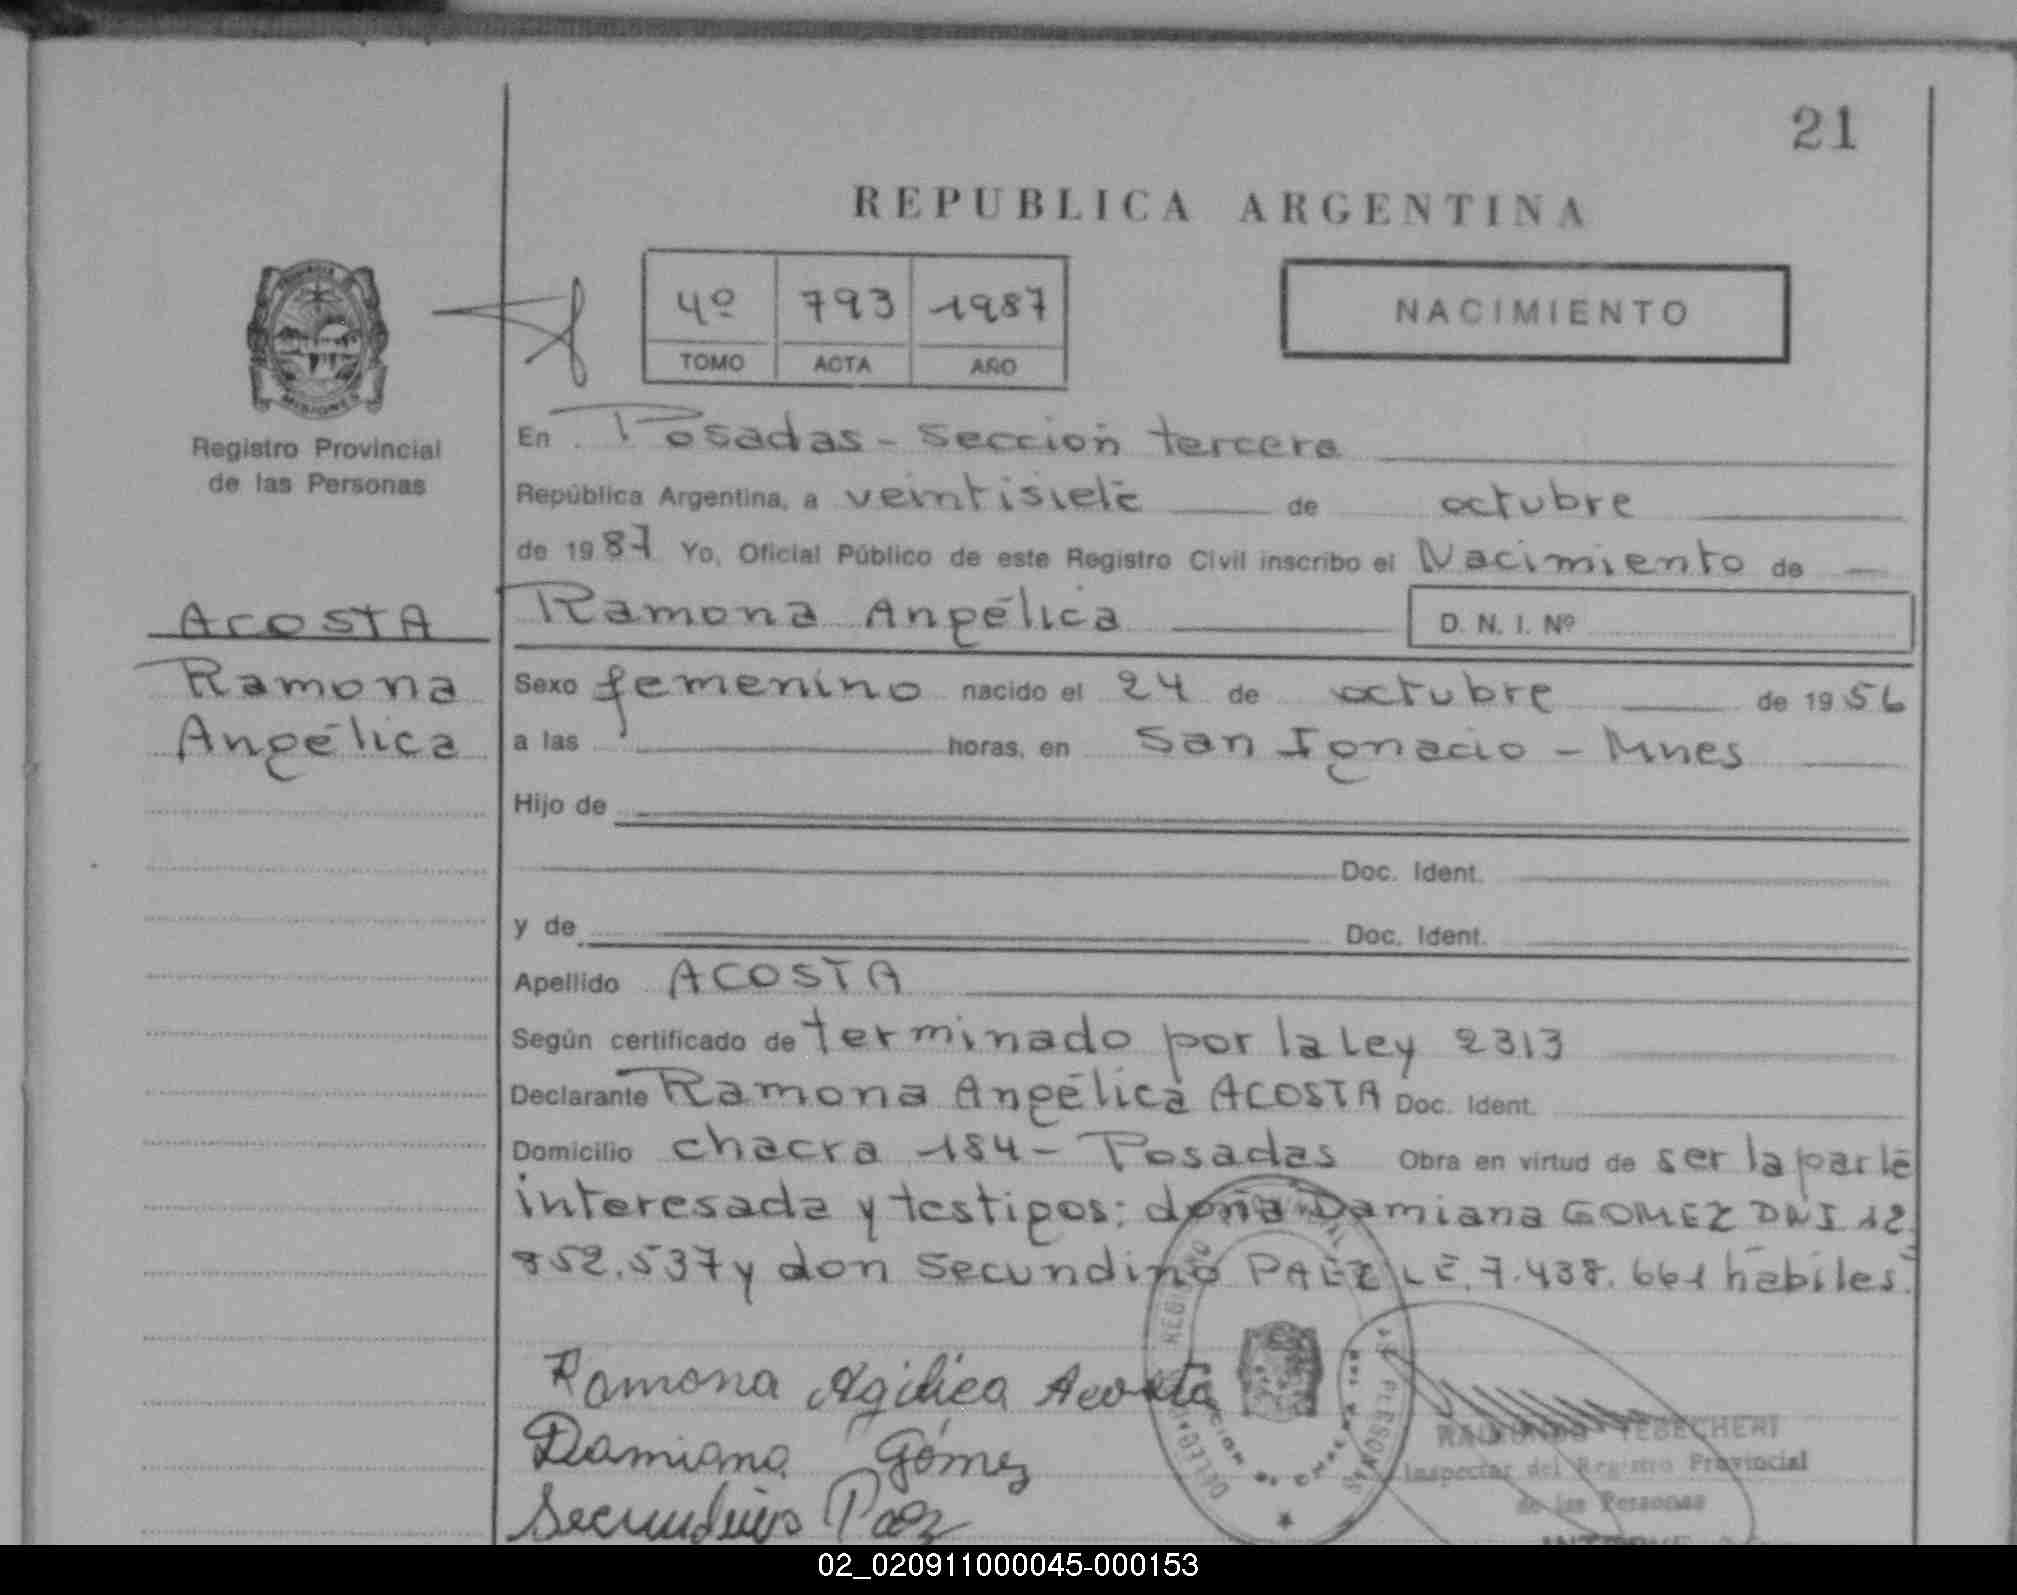 21
REPUBLICA ARGENTINA
4º 793 1987
TOMO ACTA AÑO
NACIMIENTO
MISIONES
Registro Provincial
de las Personas
En Posadas - Sección tercera
República Argentina, a veintisiete de octubre
de 1987 Yo, Oficial Público de este Registro Civil inscribo el Nacimiento de
ACOSTA
Ramona
Angélica
Ramona Angélica D. N. I. Nº
Sexo femenino nacido el 24 de octubre de 1956
a las horas, en San Ignacio - Mnes
Hijo de
Doc. Ident.
y de Doc. Ident.
Apellido ACOSTA
Según certificado de terminado por la Ley 2313
Declarante Ramona Angélica ACOSTA Doc. Ident.
Domicilio chacra 184 - Posadas Obra en virtud de ser la parte
interesada y testigos: doña Damiana GOMEZ DNI 12.
852.537 y don Secundino PAEZ LE. 7.438.661 hábiles.
Ramona Agilica Acosta
Damiana Gómez
Secundino Paez
RAIMUNDO TEBECHERI
Inspector del Registro Provincial
de las Personas
02_020911000045-000153